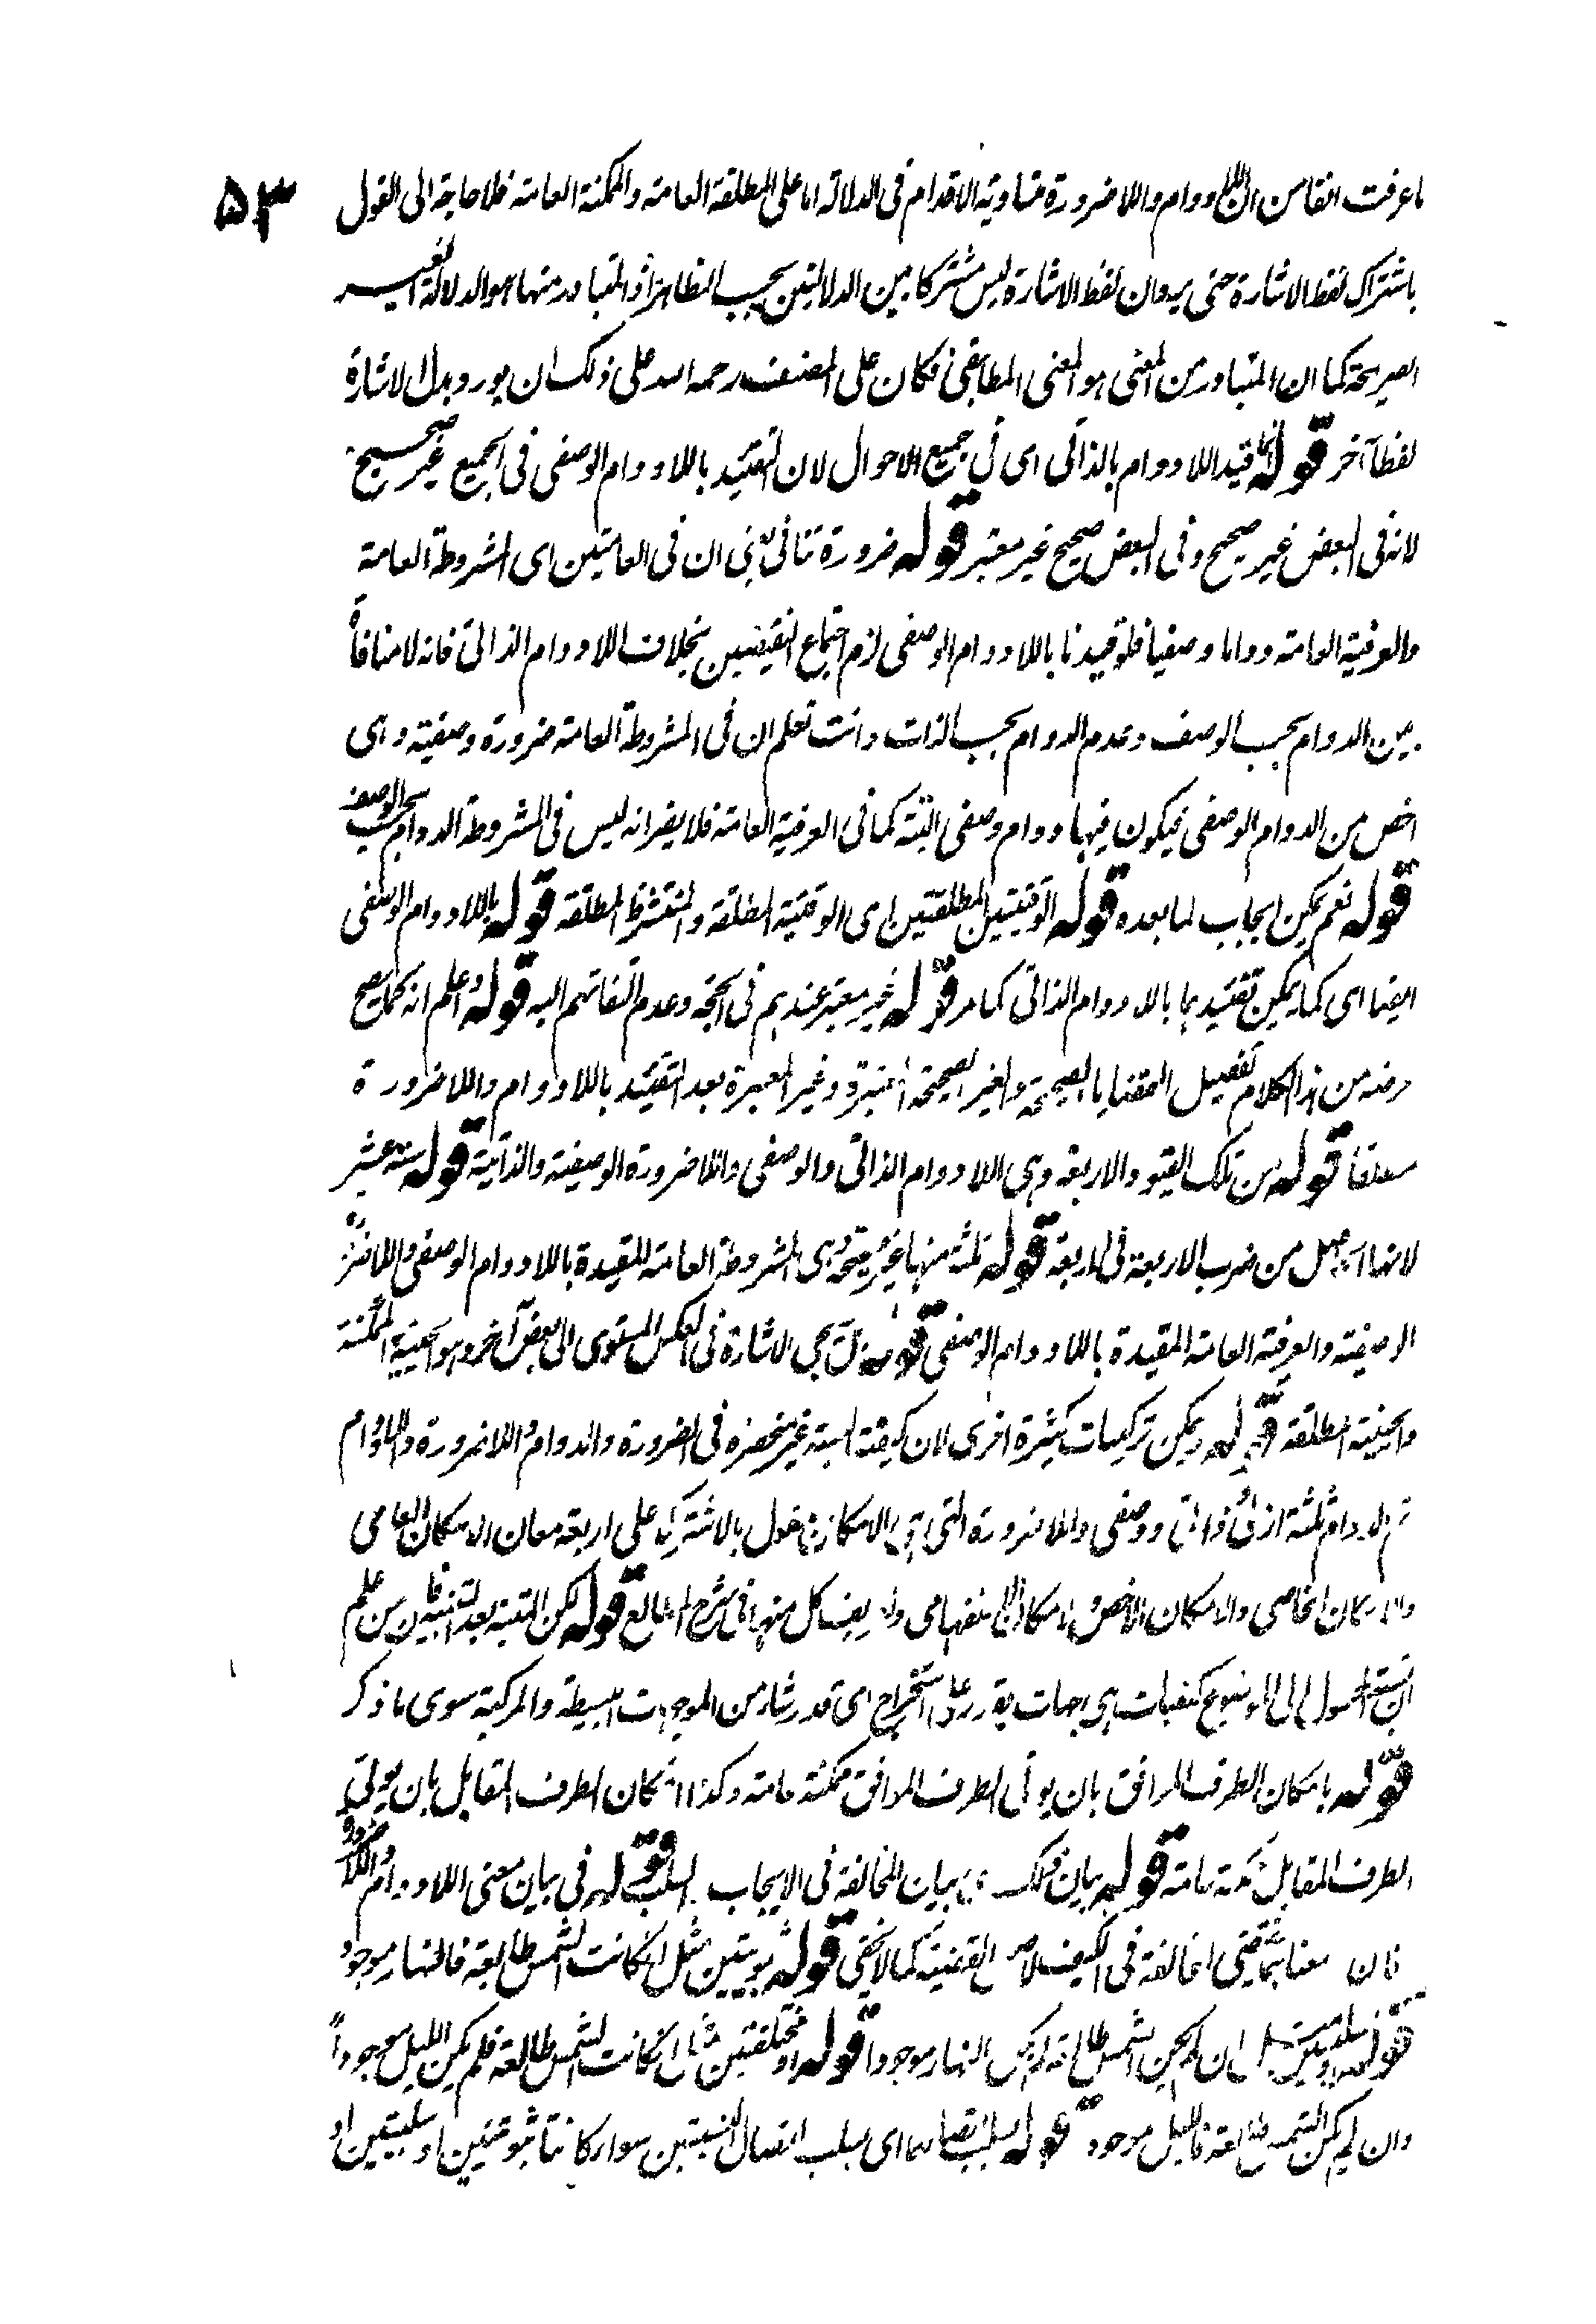 ۵۳
ما عرفت انفا من ان اللادوام واللاضرورة متساوية الاقدام فى الدلالة اما على المطلقة العامة والممكنة العامة فلا حاجة الى القول
باشتراك لفظ الاشارة حتى يرد ان لفظ الاشارة ليس مشتركا بين الدلالتين بحسب الظاهر اذ المتبادر منها هو الدلالة الغير
الصريحة كما ان المتبادر من المعنى هو المعنى المطابقى فكان على المصنف رحمه الله على ذلك ان يورد بدل الاشارة
لفظا آخر قوله قيد اللادوام بالذاتى اى فى جميع الاحوال لان التقييد باللادوام الوصفى فى الجميع غير صحيح
لانه فى البعض غير صحيح وفى البعض صحيح غير معتبر قوله ضرورة تنافى يعنى ان فى العامتين اى المشروطة العامة
والعرفية العامة دواما وصفيا فلو قيدنا باللادوام الوصفى لزم اجتماع النقيضين بخلاف اللادوام الذاتى فانه لا منافاة
بين الدوام بحسب الوصف وعدم الدوام بحسب الذات وانت تعلم ان فى المشروطة العامة ضرورة وصفية وهى
اخص من الدوام الوصفى فيكون فيها دوام وصفى البتة كما فى العرفية العامة فلا يضر انه ليس فى المشروطة الدوام بحسب الوصف
قوله نعم يمكن ايجاب لما بعده قوله الوقتيتين المطلقتين اى الوقتية المطلقة والمنتشرة المطلقة قوله باللادوام الوصفى
ايضا اى كما يمكن تقييدهما باللادوام الذاتى كما مر قوله غير معتبر عندهم فى الحجة وعدم التفاتهم اليه قوله واعلم انه كما يصح
غرضه من هذا الكلام تفصيل القضايا الصحيحة والغير الصحيحة المعتبرة وغير المعتبرة بعد التقييد باللادوام واللاضرورة
مطلقا قوله من تلك القيود الاربعة وهى اللادوام الذاتى والوصفى واللاضرورة الوصفية والذاتية قوله ستة عشر
لانها الحاصل من ضرب الاربعة فى اربعة قوله ثلثة منها غير صحيحة وهى المشروطة العامة المقيدة باللادوام الوصفى واللاضرورة
الوصفية والعرفية العامة المقيدة باللادوام الوصفى قوله تجئ الاشارة فى العكس المستوى الى بعض آخر وهو الحينية الممكنة
والحينية المطلقة قوله ويمكن تركيبات كثيرة اخرى لان كيفية النسبة غير منحصرة فى الضرورة والدوام واللاضرورة واللادوام
ثم الدوام ثلثة ازلى وذاتى ووصفى واللاضرورة التى هى الامكان مقول بالاشتراك على اربعة معان الامكان العامى
والامكان الخاصى والامكان الاخص والامكان الاستقبالى وتعريف كل منها فى شرح المطالع قوله لكن التنبيه بعد التنبيه لان من علم
ان نسبة المحمول الى الموضوع كيفيات هى جهات يقدر على استخراج اى قدر شاء من الموجهات البسيطة والمركبة سوى ما ذكر
قوله بامكان الطرف الموافق بان يؤتى الطرف الموافق ممكنة عامة وكذا امكان الطرف المقابل بان يؤتى
الطرف المقابل ممكنة عامة قوله بيان لذلك اى بيان المخالفة فى الايجاب والسلب قوله فى بيان معنى اللادوام واللاضرورة
فان معناهما يقتضى المخالفة فى الكيف لاصل القضية كما لا يخفى قوله ثبوتيتين مثل ان كانت الشمس طالعة فالنهار موجود
قوله او سلبيتين مثل ان لم يكن الشمس طالعة لم يكن النهار موجودا قوله او مختلفتين مثل ان كانت الشمس طالعة فلم يكن الليل موجوداً
وان لم يكن الشمس طالعة فالليل موجود قوله بسلب اتصالهما اى بسلب اتصال النسبتين سواء كانتا ثبوتيتين او سلبيتين او